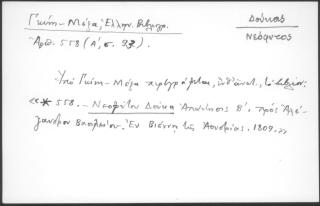 Γκίνη - Μέξα, Ελλην. Βιβλιογρ.
Αριθ. 558 (Α', σ. 93).
Δούκας
Νεόφυτος
Υπό Γκίνη - Μέξα περιγράφεται,
«* 558. - Νεοφύτου Δούκα Απάντησις Β'. πρός Αλέ-
ξανδρον Βασιλείου. Εν Βιέννη της Αουστρίας. 1809.»